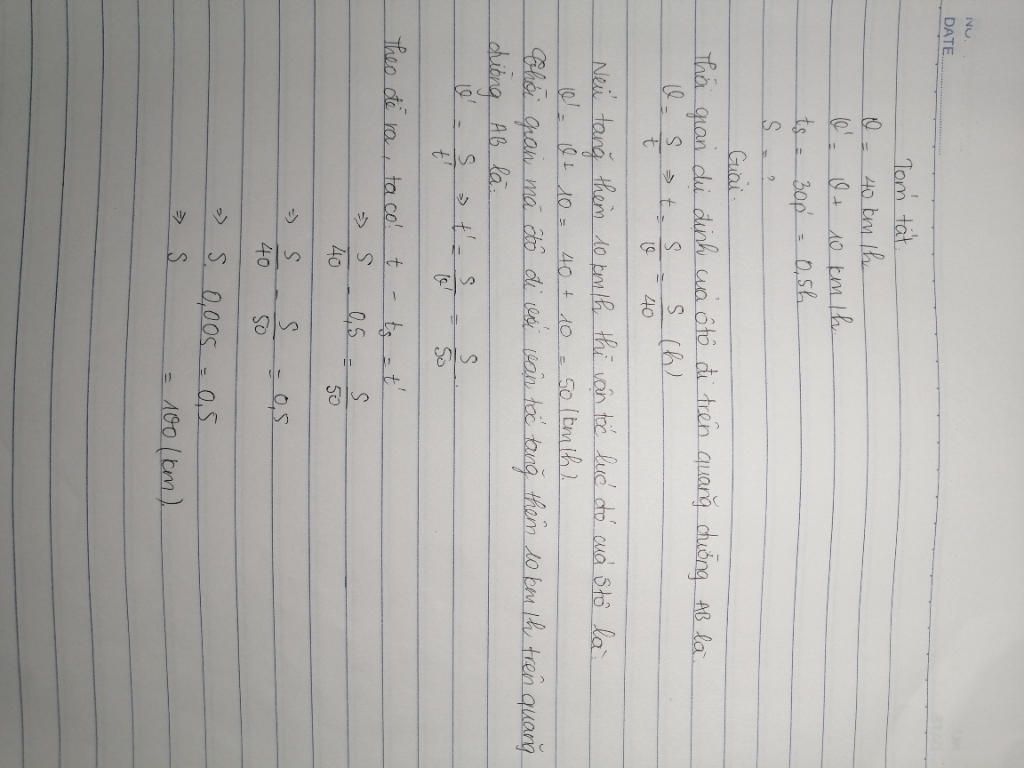 NO.
DATE
Tóm tắt
v = 40 km/h
v' = v + 10 km/h
ts = 30p' = 0,5h
S = ?
Giải:
Thời gian dự định của ôtô đi trên quãng đường AB là:
v = S/t ⇒ t = S/v = S/40 (h)
Nếu tăng thêm 10km/h thì vận tốc lúc đó của ôtô là:
v' = v + 10 = 40 + 10 = 50 (km/h).
Thời gian mà ôtô đi với vận tốc tăng thêm 10 km/h trên quãng
đường AB là:
v' = S/t' ⇒ t' = S/v' = S/50.
Theo đề ra, ta có: t - ts = t'
⇒ S/40 - 0,5 = S/50
⇒ S/40 - S/50 = 0,5
⇒ S. 0,005 = 0,5
⇒ S = 100 (km).